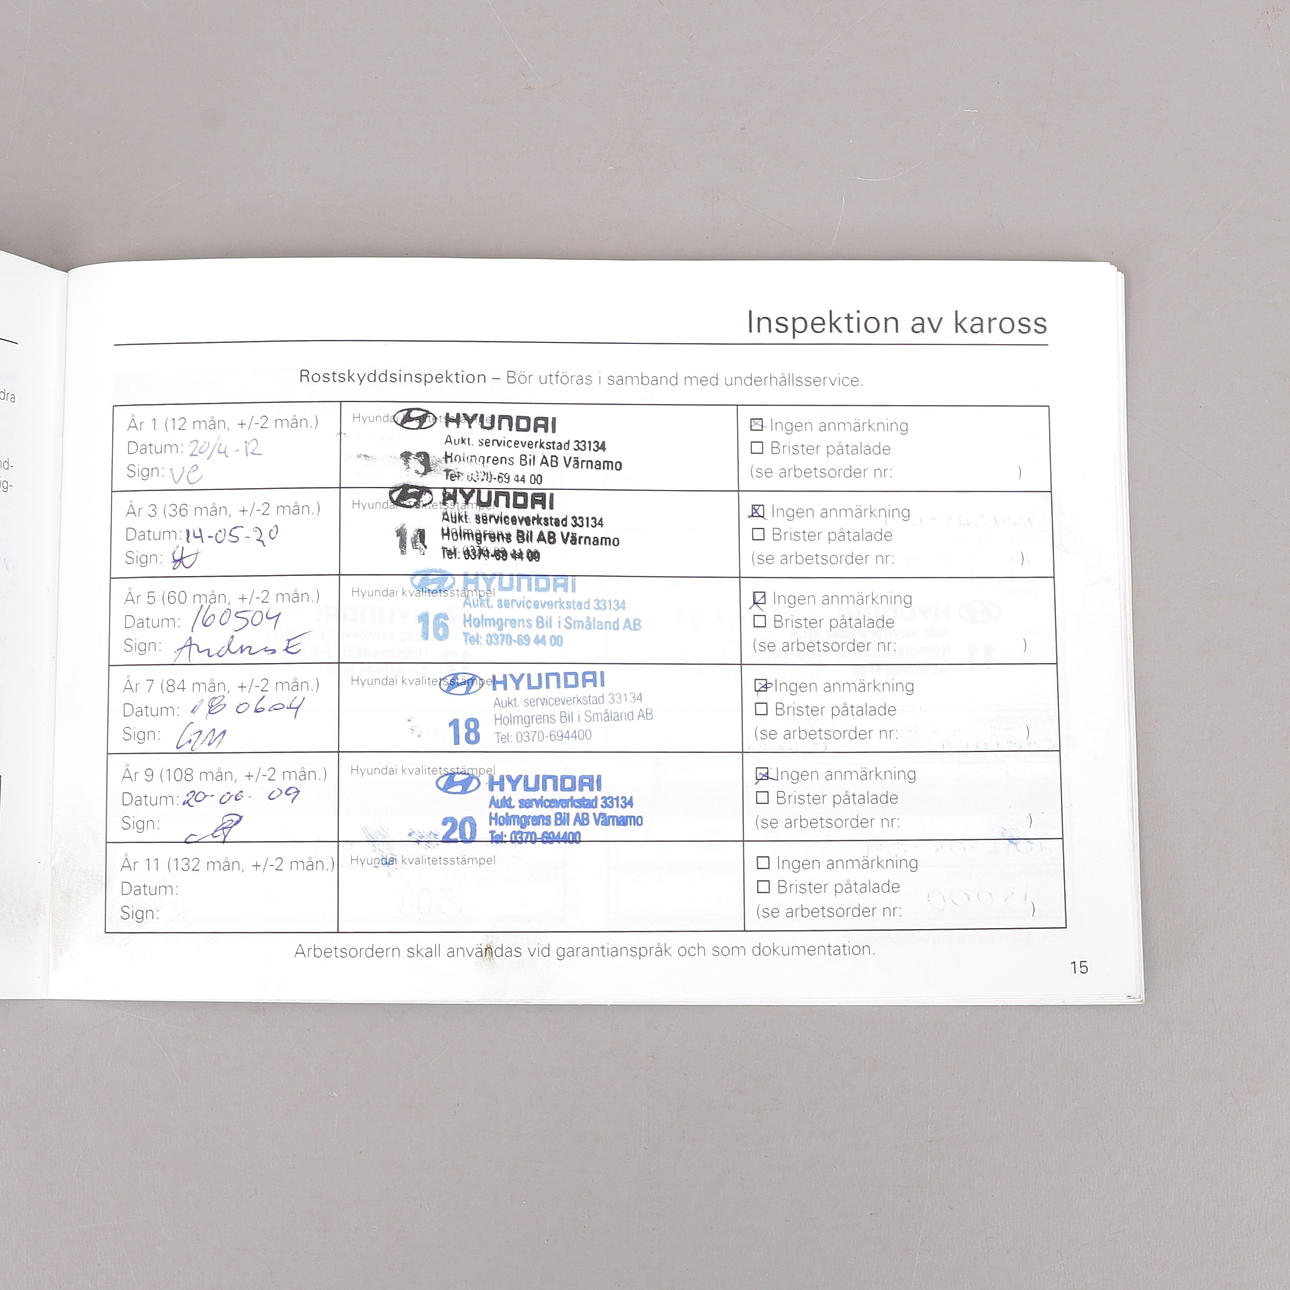 dra
nd-
ig-
Inspektion av kaross
Rostskyddsinspektion – Bör utföras i samband med underhållsservice.
År 1 (12 mån, +/-2 mån.)
Datum: 20/4-12
Sign: VE
Hyundai kvalitetsstämpel
HYUNDAI
Aukt. serviceverkstad 33134
13 Holmgrens Bil AB Värnamo
Tel: 0370-69 44 00
Ingen anmärkning
Brister påtalade
(se arbetsorder nr: )
År 3 (36 mån, +/-2 mån.)
Datum: 14-05-20
Sign:
Hyundai kvalitetsstämpel
HYUNDAI
Aukt. serviceverkstad 33134
14 Holmgrens Bil AB Värnamo
Tel: 0370-69 44 00
Ingen anmärkning
Brister påtalade
(se arbetsorder nr: )
År 5 (60 mån, +/-2 mån.)
Datum: 160504
Sign: Andreas E
Hyundai kvalitetsstämpel
HYUNDAI
Aukt. serviceverkstad 33134
16 Holmgrens Bil i Småland AB
Tel: 0370-69 44 00
Ingen anmärkning
Brister påtalade
(se arbetsorder nr: )
År 7 (84 mån, +/-2 mån.)
Datum: 180604
Sign:
Hyundai kvalitetsstämpel
HYUNDAI
Aukt. serviceverkstad 33134
18 Holmgrens Bil i Småland AB
Tel: 0370-694400
Ingen anmärkning
Brister påtalade
(se arbetsorder nr: )
År 9 (108 mån, +/-2 mån.)
Datum: 20-06-09
Sign:
Hyundai kvalitetsstämpel
HYUNDAI
Aukt. serviceverkstad 33134
20 Holmgrens Bil AB Värnamo
Tel: 0370-694400
Ingen anmärkning
Brister påtalade
(se arbetsorder nr: )
År 11 (132 mån, +/-2 mån.)
Datum:
Sign:
Hyundai kvalitetsstämpel
Ingen anmärkning
Brister påtalade
(se arbetsorder nr: )
Arbetsordern skall användas vid garantianspråk och som dokumentation.
15